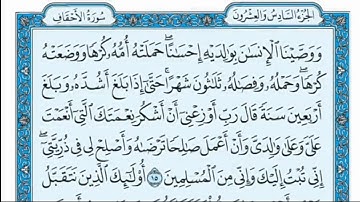 الجزء السادس والعشرون
سورة الأحقاف
وَوَصَّيْنَا ٱلْإِنسَٰنَ بِوَٰلِدَيْهِ إِحْسَٰنًا ۖ حَمَلَتْهُ أُمُّهُۥ كُرْهًا وَوَضَعَتْهُ
كُرْهًا ۖ وَحَمْلُهُۥ وَفِصَٰلُهُۥ ثَلَٰثُونَ شَهْرًا ۚ حَتَّىٰٓ إِذَا بَلَغَ أَشُدَّهُۥ وَبَلَغَ
أَرْبَعِينَ سَنَةً قَالَ رَبِّ أَوْزِعْنِىٓ أَنْ أَشْكُرَ نِعْمَتَكَ ٱلَّتِىٓ أَنْعَمْتَ
عَلَىَّ وَعَلَىٰ وَٰلِدَىَّ وَأَنْ أَعْمَلَ صَٰلِحًا تَرْضَىٰهُ وَأَصْلِحْ لِى فِى ذُرِّيَّتِىٓ ۖ
إِنِّى تُبْتُ إِلَيْكَ وَإِنِّى مِنَ ٱلْمُسْلِمِينَ ١٥ أُو۟لَٰٓئِكَ ٱلَّذِينَ نَتَقَبَّلُ